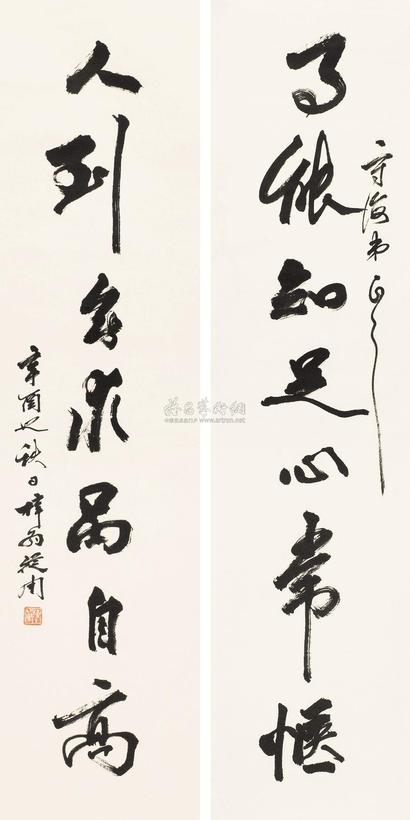 事能知足心常惬
守海弟正之
人到无求品自高
辛酉之秋日梓翁从周
雅昌艺术网
www.artron.net